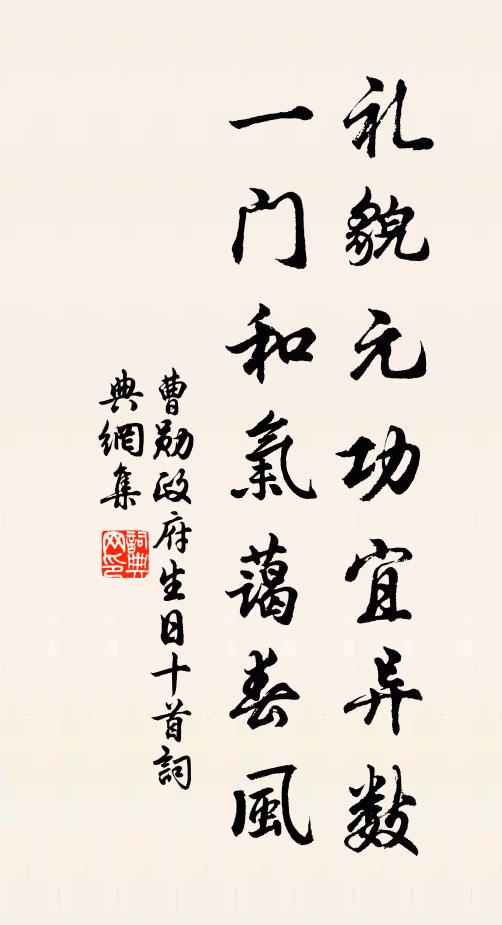 礼貌元功宜异数
一门和氣藹春風
曹勋政府生日十首詞
典網集
詞典网印